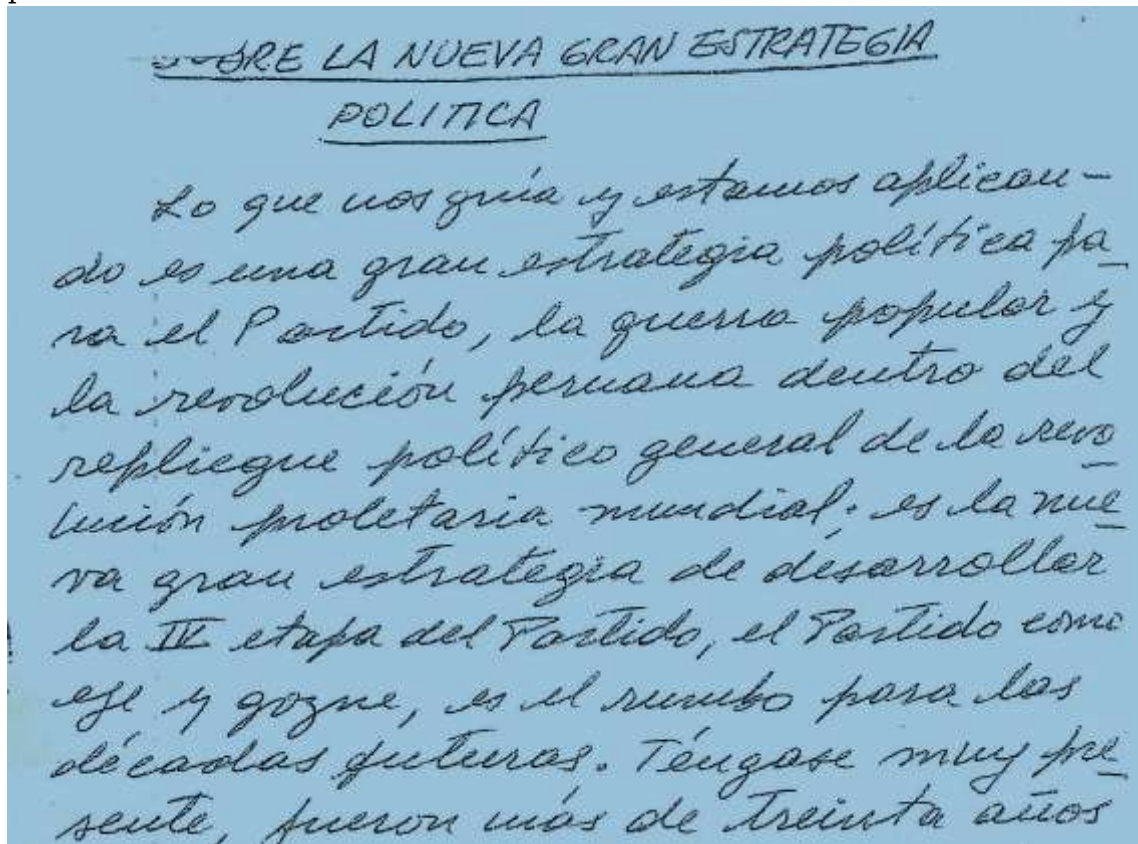 SOBRE LA NUEVA GRAN ESTRATEGIA
POLITICA
Lo que nos guía y estamos aplican-
do es una gran estrategia política pa
ra el Partido, la guerra popular y
la revolución peruana dentro del
repliegue político general de la revo
lución proletaria mundial; es la nue
va gran estrategia de desarrollar
la IV etapa del Partido, el Partido como
eje y gozne, es el rumbo para las
décadas futuras. Téngase muy pre
sente, fueron más de treinta años